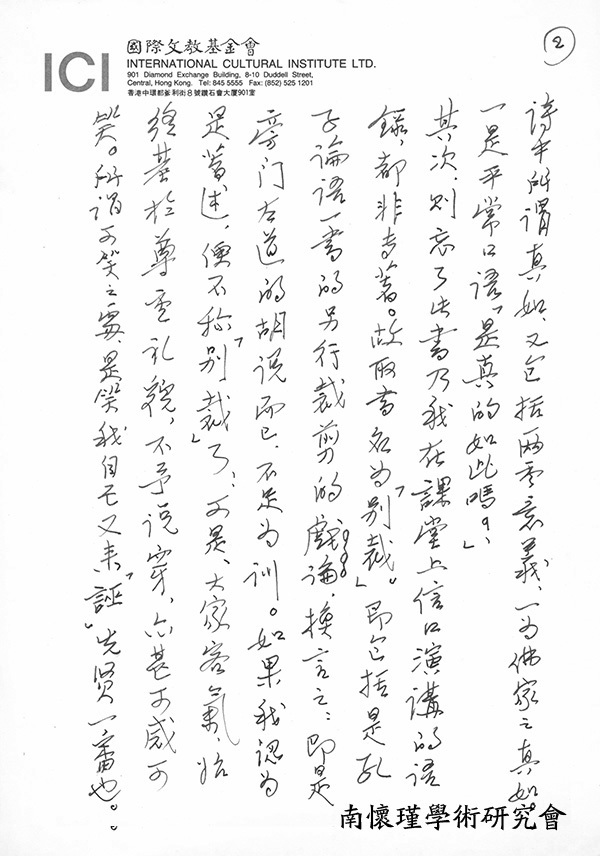 2
ICI
國際文教基金會
INTERNATIONAL CULTURAL INSTITUTE LTD.
901 Diamond Exchange Building, 8-10 Duddell Street,
Central, Hong Kong. Tel: 845 5555 Fax: (852) 525 1201
香港中環都爹利街8號鑽石會大厦901室
詩中所謂真如、又包括兩重意義、一為佛家之真如。
一是平常口語「是真的如此嗎？」
其次、則忘了此書乃我在課堂上信口演講的語
錄、都非專著。故取書名為「別裁」。即包括是孔
子論語一書的另行裁剪的戲論、換言之：即是
旁门左道的胡说而已、不足為訓。如果我認為
是著述，便不称「別裁」了、可是、大家客氣、始
終基於尊重礼貌，不予说穿，亦甚可感可
笑。所謂可笑之處、是笑我自己又来「誣」先贤一番也。
南懷瑾學術研究會